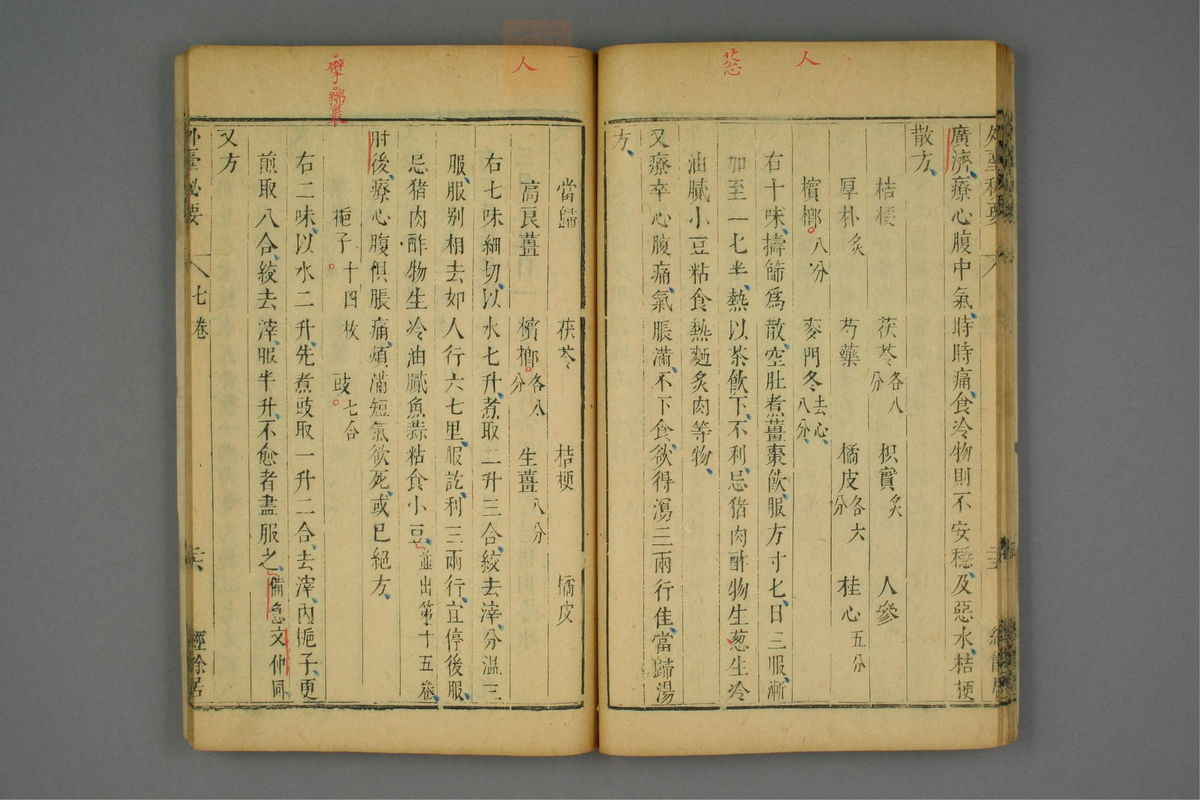 人
葱
外臺秘要
廣濟療心腹中氣時時痛食冷物則不安穩及惡水桔梗
散方
桔梗 茯苓各八分 枳實炙 人參
厚朴炙 芍藥 橘皮各六分 桂心五分
檳榔八分 麥門冬去心八分
右十味擣篩爲散空肚煮薑棗飲服方寸七日三服漸
加至一七半熱以茶飲下不利忌猪肉酢物生葱生冷
油膩小豆粘食熱麵炙肉等物
又療卒心腹痛氣脹滿不下食欲得瀉三兩行佳當歸湯
方
人
擘
綿裹
當歸 茯苓 桔梗 橘皮
高良薑 檳榔各八分 生薑八分
右七味細切以水七升煮取二升三合絞去滓分溫三
服服别相去如人行六七里服訖利三兩行宜停後服
忌猪肉酢物生冷油膩魚蒜粘食小豆並出第十五卷
肘後療心腹俱脹痛煩滿短氣欲死或已絕方
梔子十四枚 豉七合
右二味以水二升先煮豉取一升二合去滓內梔子更
煎取八合絞去滓服半升不愈者盡服之備急文仲同
又方
外臺秘要 七卷 經餘居